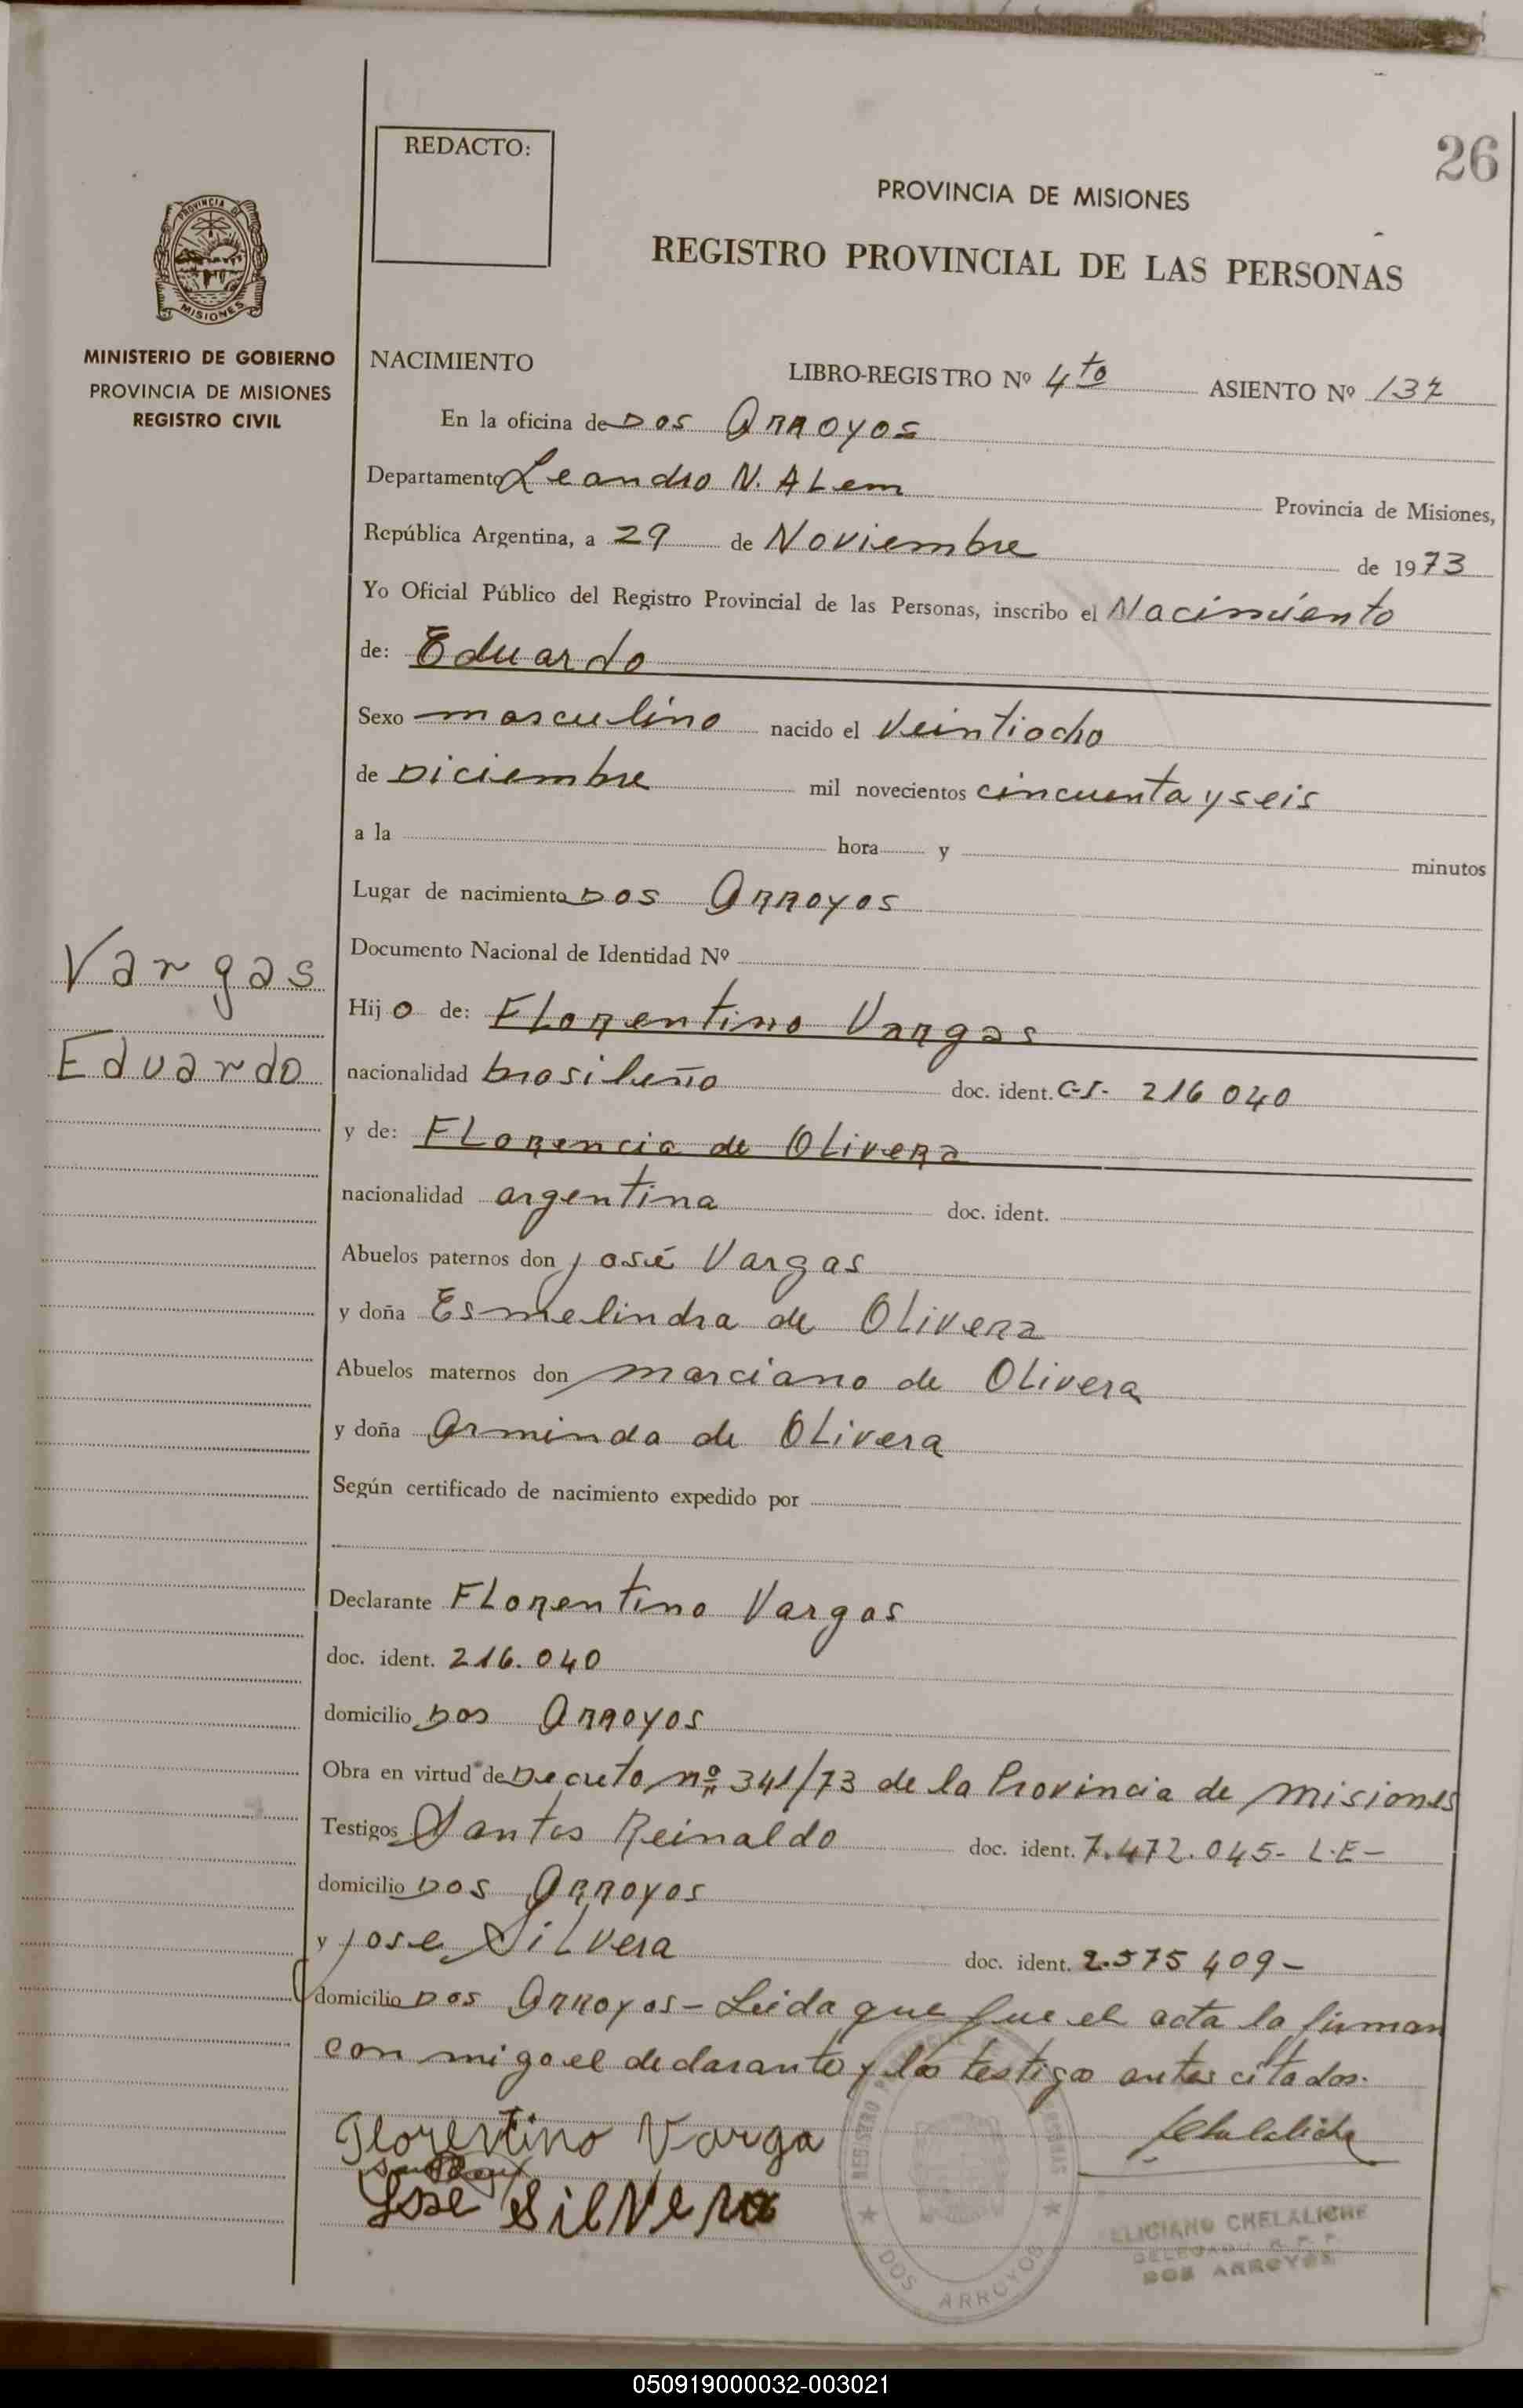 26
REDACTO:
PROVINCIA DE MISIONES
REGISTRO PROVINCIAL DE LAS PERSONAS
PROVINCIA DE
MISIONES
MINISTERIO DE GOBIERNO
PROVINCIA DE MISIONES
REGISTRO CIVIL
NACIMIENTO LIBRO-REGISTRO Nº 4to ASIENTO Nº 137
En la oficina de Dos Arroyos
Departamento Leandro N. ALem Provincia de Misiones,
República Argentina, a 29 de Noviembre de 1973
Yo Oficial Público del Registro Provincial de las Personas, inscribo el Nacimiento
de: Eduardo
Sexo masculino nacido el Veintiocho
de Diciembre mil novecientos cincuenta y seis
a la hora y minutos
Lugar de nacimiento Dos Arroyos
Documento Nacional de Identidad Nº
Vargas
Hijo de: FLorentino Vargas
Eduardo
nacionalidad brasileño doc. ident. C-I- 216 040
y de: FLorencia de Olivera
nacionalidad argentina doc. ident.
Abuelos paternos don José Vargas
y doña Esmelindra de OLivera
Abuelos maternos don marciano de OLivera
y doña Arminda de OLivera
Según certificado de nacimiento expedido por
Declarante FLorentino Vargas
doc. ident. 216.040
domicilio Dos Arroyos
Obra en virtud de Decreto nº 341/73 de la Provincia de misiones
Testigos Santos Reinaldo doc. ident. 7.472.045- L.E-
domicilio Dos Arroyos
y Jose SiLvera doc. ident. 2.575 409-
domicilio Dos Arroyos - Leida que fue el acta la firman
con migo el declarante y los testigos antes citados.
Florentino Varga
Jose Silvera
DOS ARROYOS
ELICIANO CHELALICHE
DELEGADO R. P. P.
DOS ARROYOS
050919000032-003021